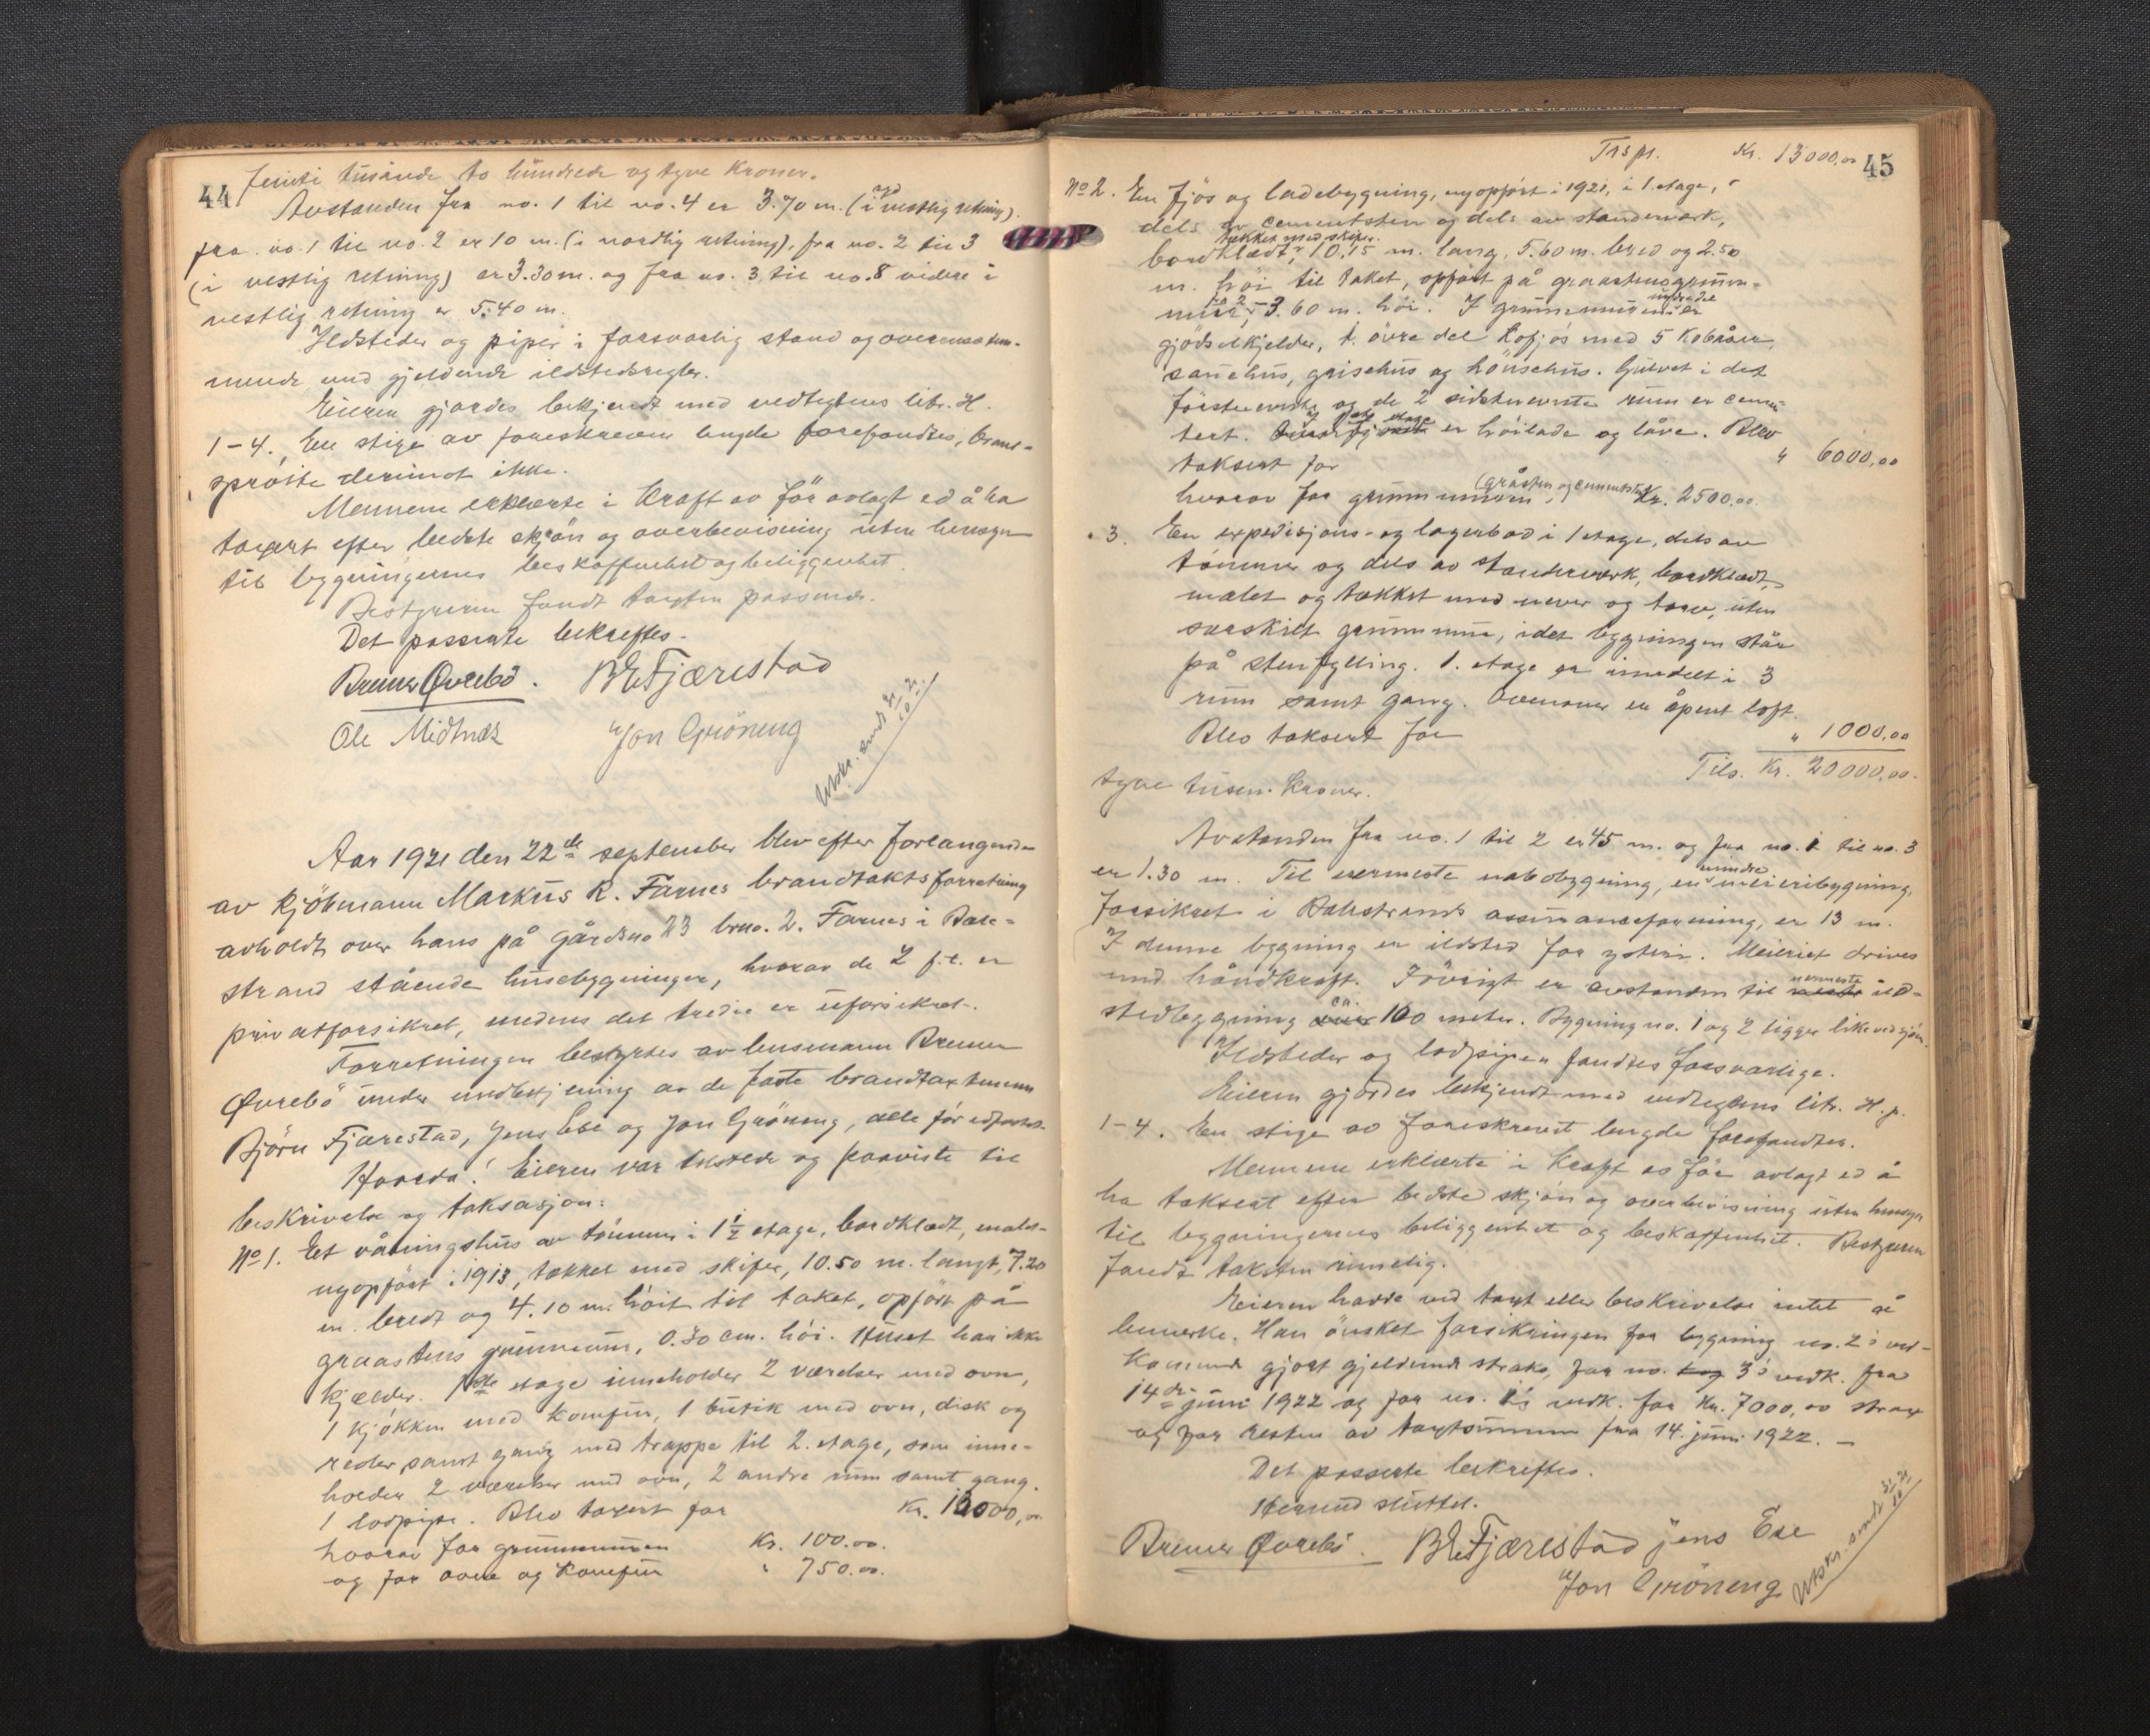 44
femti tusinde to hundrede og tyve Kroner.
Avstanden fra no. 1 til no. 4 er 3.70 m. (i vestlig retning).
fra no. 1 til no. 2 er 10 m. (i nordlig retning), fra no. 2 til 3
(i vestlig retning) er 3.30 m. og fra no. 3 til no. 8 videre i
vestlig retning er 5.40 m.
Ildsteder og piper i forsvarlig stand og overensstem-
mende med gjeldende ildstedsregler.
Eieren gjordes bekjendt med vedtegtens litr. H.
1-4. En stige av foreskreven lengde forefandtes, brand-
sprøite derimot ikke.
Mennene erklærte i kraft av før avlagt ed å ha
taxert efter bedste skjøn og overbevisning uten hensyn
til bygningernes beskaffenhet og beliggenhet.
Bestyreren fandt taxten passende.
Det passerte bekreftes.
Bremer Øvrebö. B E Fjærestad
Ole Midtnæs Jon Gröneng
Utskr. sendt 21/10 21.
Aar 1921 den 22de september blev efter forlangende
av kjöbmann Markus R. Farnes brandtakstforretning
avholdt over hans på gårdsno 23 brno. 2. Farnes i Bale-
strand stående husebygninger, hvorav de 2 f.t. er
privatforsikret, medens det tredie er uforsikret.
Forretningen bestyrtes av lensmann Bremer
Øvrebö under medbetjening av de faste brandtaxtmenn
Björn Fjærestad, Jens Ese og Jon Gröneng, alle før edfæstet.
Hvorda! Eieren var tilstede og paaviste til
beskrivelse og taksasjon:
No 1. Et våningshus av tömmer i 1½ etage, bordklædt, malet
nyopfört i 1913, tækket med skifer, 10.50 m. langt, 7.20
m. bredt og 4.10 m. høit til taket, opfört på
graastens grunnmur, 0.30 cm. høi. Huset har ikke
kjælder. 1ste etage inneholder 2 værelser med ovn,
1 kjøkken med komfur, 1 butik med ovn, disk og
reoler samt gang med trappe til 2. etage, som inne-
holder 2 værelser med ovn, 2 andre rum samt gang.
1 lodpipe. Blev taxert for Kr. 13000,00
hvorav for grunnmuren Kr. 100.00.
og for ovne og komfur " 750.00.
45
Trspr. Kr. 13000,00
No 2. En fjös og ladebygning, nyopfört i 1921, i 1. etage,
dels av cementsten og dels av stenderværk,
tækket med skifer.
bordklædt, 10.15 m. lang, 5.60 m. bred og 2.50
m. høi til taket, opfört på graastensgrunn-
mur, fra 2 - 3.60 m. høi. I grunnmurens nedre del er
gjödselkjelder, i övre del kofjös med 5 kobåser,
sauehus, grisehus og hönsehus. Gulvet i det
förstnevnte og de 2 sidstnevnte rum er cemen-
tert. I 1ste etage er höilade og låve. Blev
taksert for " 6000,00
hvorav for grunnmuren (gråsten og cementsten) Kr. 2500.00.
" 3. En expedisjons- og lagerbod i 1 etage, dels av
tömmer og dels av stenderværk, bordklædt,
malet og tækket med never og torv, uten
særskilt grunnmur, idet bygningen står
på stenfylling. 1. etage er inndelt i 3
rum samt gang. Ovenover er åpent loft.
Blev taksert for " 1000,00
Tils. Kr. 20000,00.
tyve tusen Kroner.
Avstanden fra no. 1 til 2 er 45 m. og fra no. 1 til no. 3
er 1.30 m. Til nermeste nabobygning, en mindre meieribygning,
forsikret i Balestrands assuranceforening, er 13 m.
I denne bygning er ildsted for ysteri. Meieriet drives
med håndkraft. Iövrigt er avstanden til nermeste ild-
stedbygning ca. 100 meter. Bygning no. 1 og 2 ligger like ved sjön.
Ildsteder og lodpiper fandtes forsvarlige.
Eieren gjordes bekjendt med vedtegtens litr. H. p.
1-4. En stige av foreskrevet lengde forefandtes.
Mennene erklærte i kraft av før avlagt ed å
ha taksert efter bedste skjön og overbevisning uten hensyn
til bygningernes beliggenhet og beskaffenhet. Bestyreren
fandt taksten rimelig.
Eieren hadde ved taxt eller beskrivelse intet å
bemerke. Han önsket forsikringen for bygning no. 2's ved-
kommende gjort gjeldende straks, for no. 3's vedk. fra
14de juni 1922 og for no. 1's vedk. for Kr. 7000,00 strax
og for resten av taxtsummen fra 14. juni 1922. -
Det passerte bekreftes.
Hermed sluttet.
Bremer Øvrebö. B E Fjærestad Jens Ese
Jon Gröneng
Utskr. sendt 21/10 21.